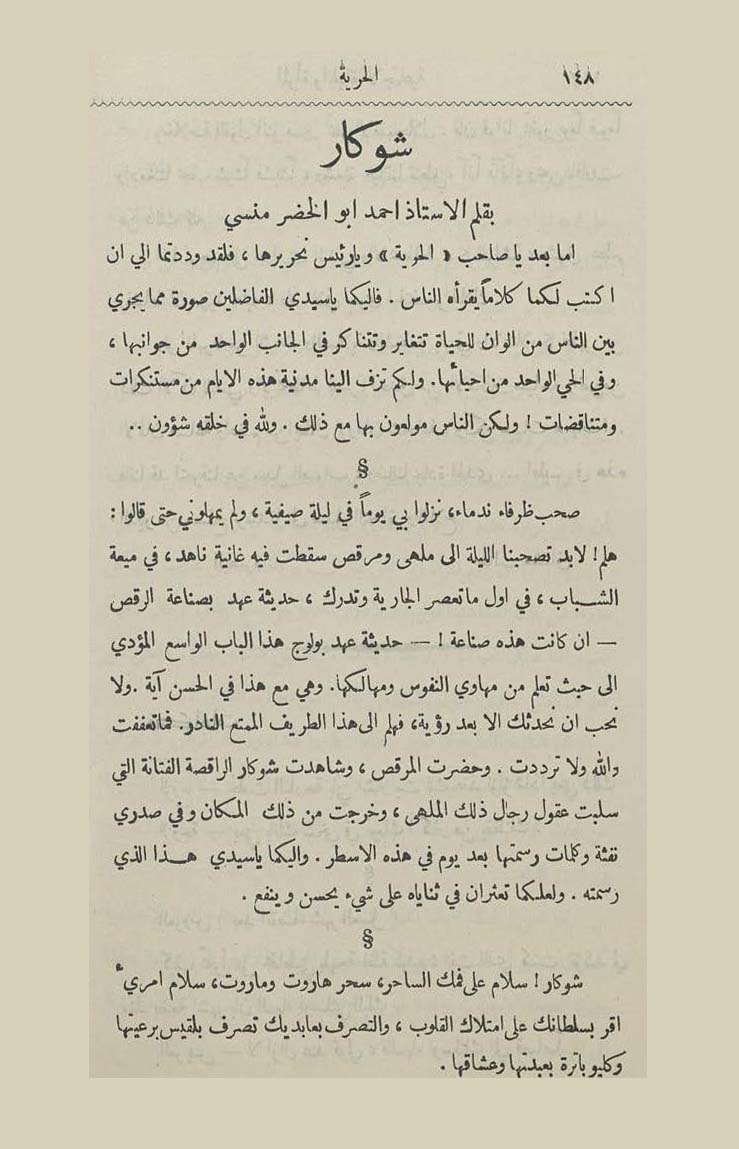 ١٤٨
الحرية
شوكار
بقلم الاستاذ احمد ابو الخضر منسي
اما بعد يا صاحب « الحرية » ويارئيس تحريرها ، فلقد وددتما الي ان
اكتب لكما كلاماً يقرأه الناس . فاليكما ياسيدي الفاضلين صورة مما يجري
بين الناس من الوان للحياة تتغاير وتتناكر في الجانب الواحد من جوانبها ،
وفي الحي الواحد من احيائها. ولكم تزف الينا مدنية هذه الايام من مستنكرات
ومتناقضات ! ولكن الناس مولعون بها مع ذلك . ولله في خلقه شؤون ..
§
صحب ظرفاء ندماء، نزلوا بي يوماً في ليلة صيفية ، ولم يمهلوني حتى قالوا :
هلم! لابد تصحبنا الليلة الى ملهى ومرقص سقطت فيه غانية ناهد ، في ميعة
الشباب ، في اول ماتعصر الجارية وتدرك ، حديثة عهد بصناعة الرقص
— ان كانت هذه صناعة ! — حديثة عهد بولوج هذا الباب الواسع المؤدي
الى حيث تعلم من مهاوي النفوس ومهالكها. وهي مع هذا في الحسن آية . ولا
نحب ان نحدثك الا بعد رؤية، فهلم الى هذا الطريف الممتع النادر. فماتعففت
والله ولا ترددت . وحضرت المرقص ، وشاهدت شوكار الراقصة الفتانة التي
سلبت عقول رجال ذلك الملهى ، وخرجت من ذلك المكان وفي صدري
نفثة وكلمات رسمتها بعد يوم في هذه الاسطر . واليكما ياسيدي هذا الذي
رسمته . ولعلكما تعثران في ثناياه على شيء يحسن وينفع .
§
شوكار ! سلام على فمك الساحر، سحر هاروت وماروت، سلام امريء
اقر بسلطانك على امتلاك القلوب ، والتصرف بعابديك تصرف بلقيس برعيتها
وكليوباترة بعبدتها وعشاقها .